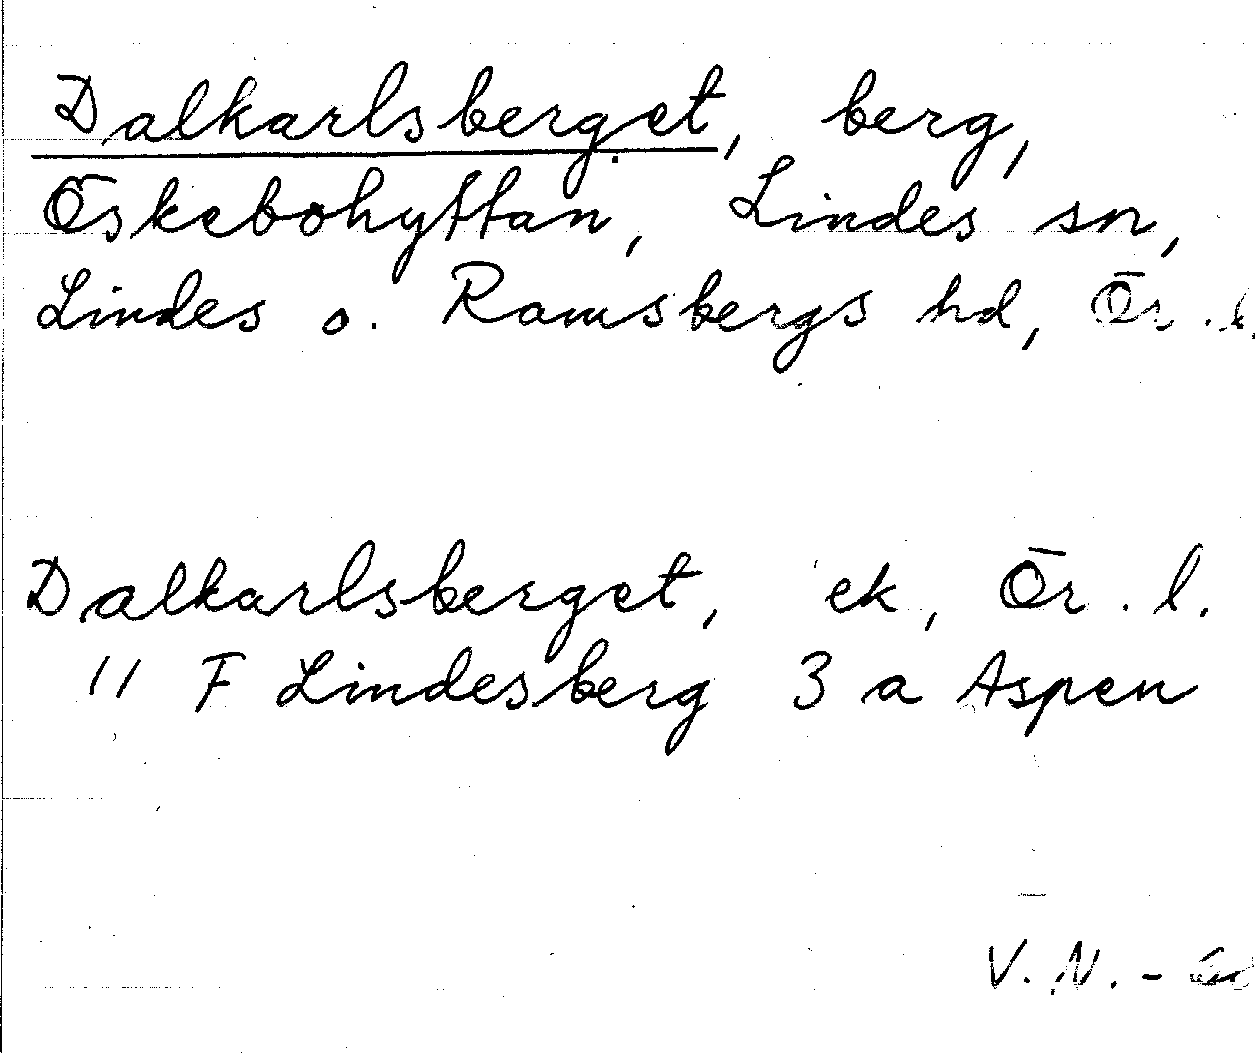 Dalkarlsberget, berg,
Öskebohyttan, Lindes sn,
Lindes o. Ramsbergs hd, Ör. l.
Dalkarlsberget, ek, Ör. l.
11 F Lindesberg 3 a Aspen
V. N. -